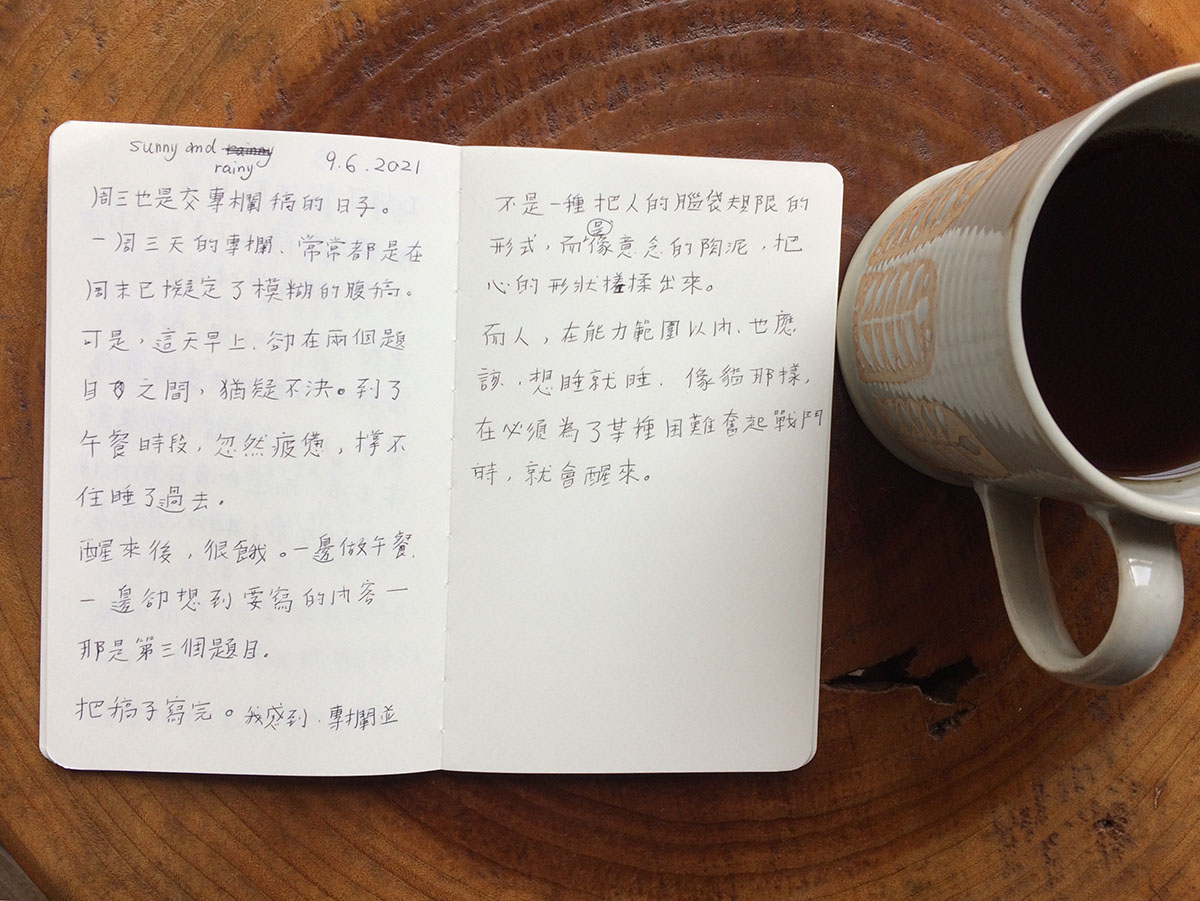 sunny and rainy 9.6.2021
周三也是交專欄稿的日子。
一周三天的專欄、常常都是在
周末已擬定了模糊的腹稿。
可是,這天早上、卻在兩個題
目之間,猶疑不決。到了
午餐時段,忽然疲憊,撑不
住睡了過去。
醒來後,很餓。一邊做午餐、
一邊卻想到要寫的內容一
那是第三個題目。
把稿子寫完。我感到、專欄並
不是一種把人的腦袋規限的
形式,而是像意念的陶泥,把
心的形狀搓揉出來。
而人,在能力範圍以內、也應
該、想睡就睡、像貓那樣,
在必須為了某種困難奮起戰鬥
時,就會醒來。